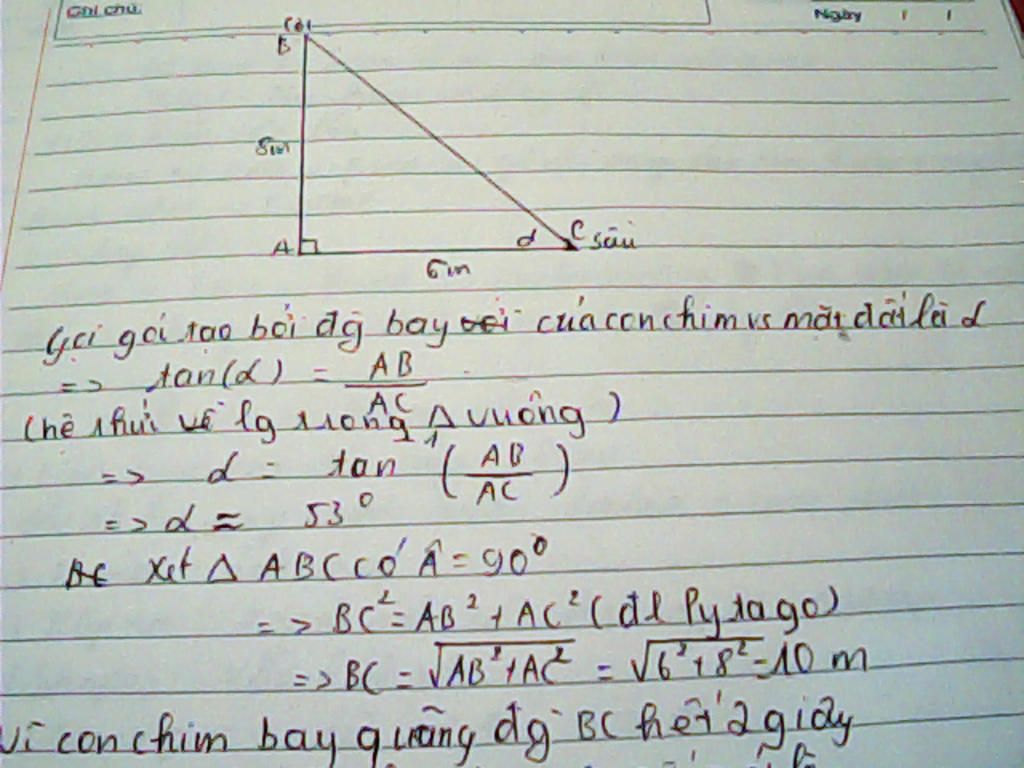 Ghi chú:
Ngày / /
B
8m
A
α C sâu
6m
Gọi gói tạo bởi đg bay của con chim vs mặt đất là α
=> tan(α) = AB/AC
(hệ thức về lg trong Δ vuông)
=> α = tan⁻¹(AB/AC)
=> α ≈ 53⁰
Xét Δ ABC có Â = 90⁰
=> BC² = AB² + AC² (đl Pytago)
=> BC = √AB² + AC² = √6² + 8² = 10 m
Vì con chim bay quãng đg BC hết 2 giây